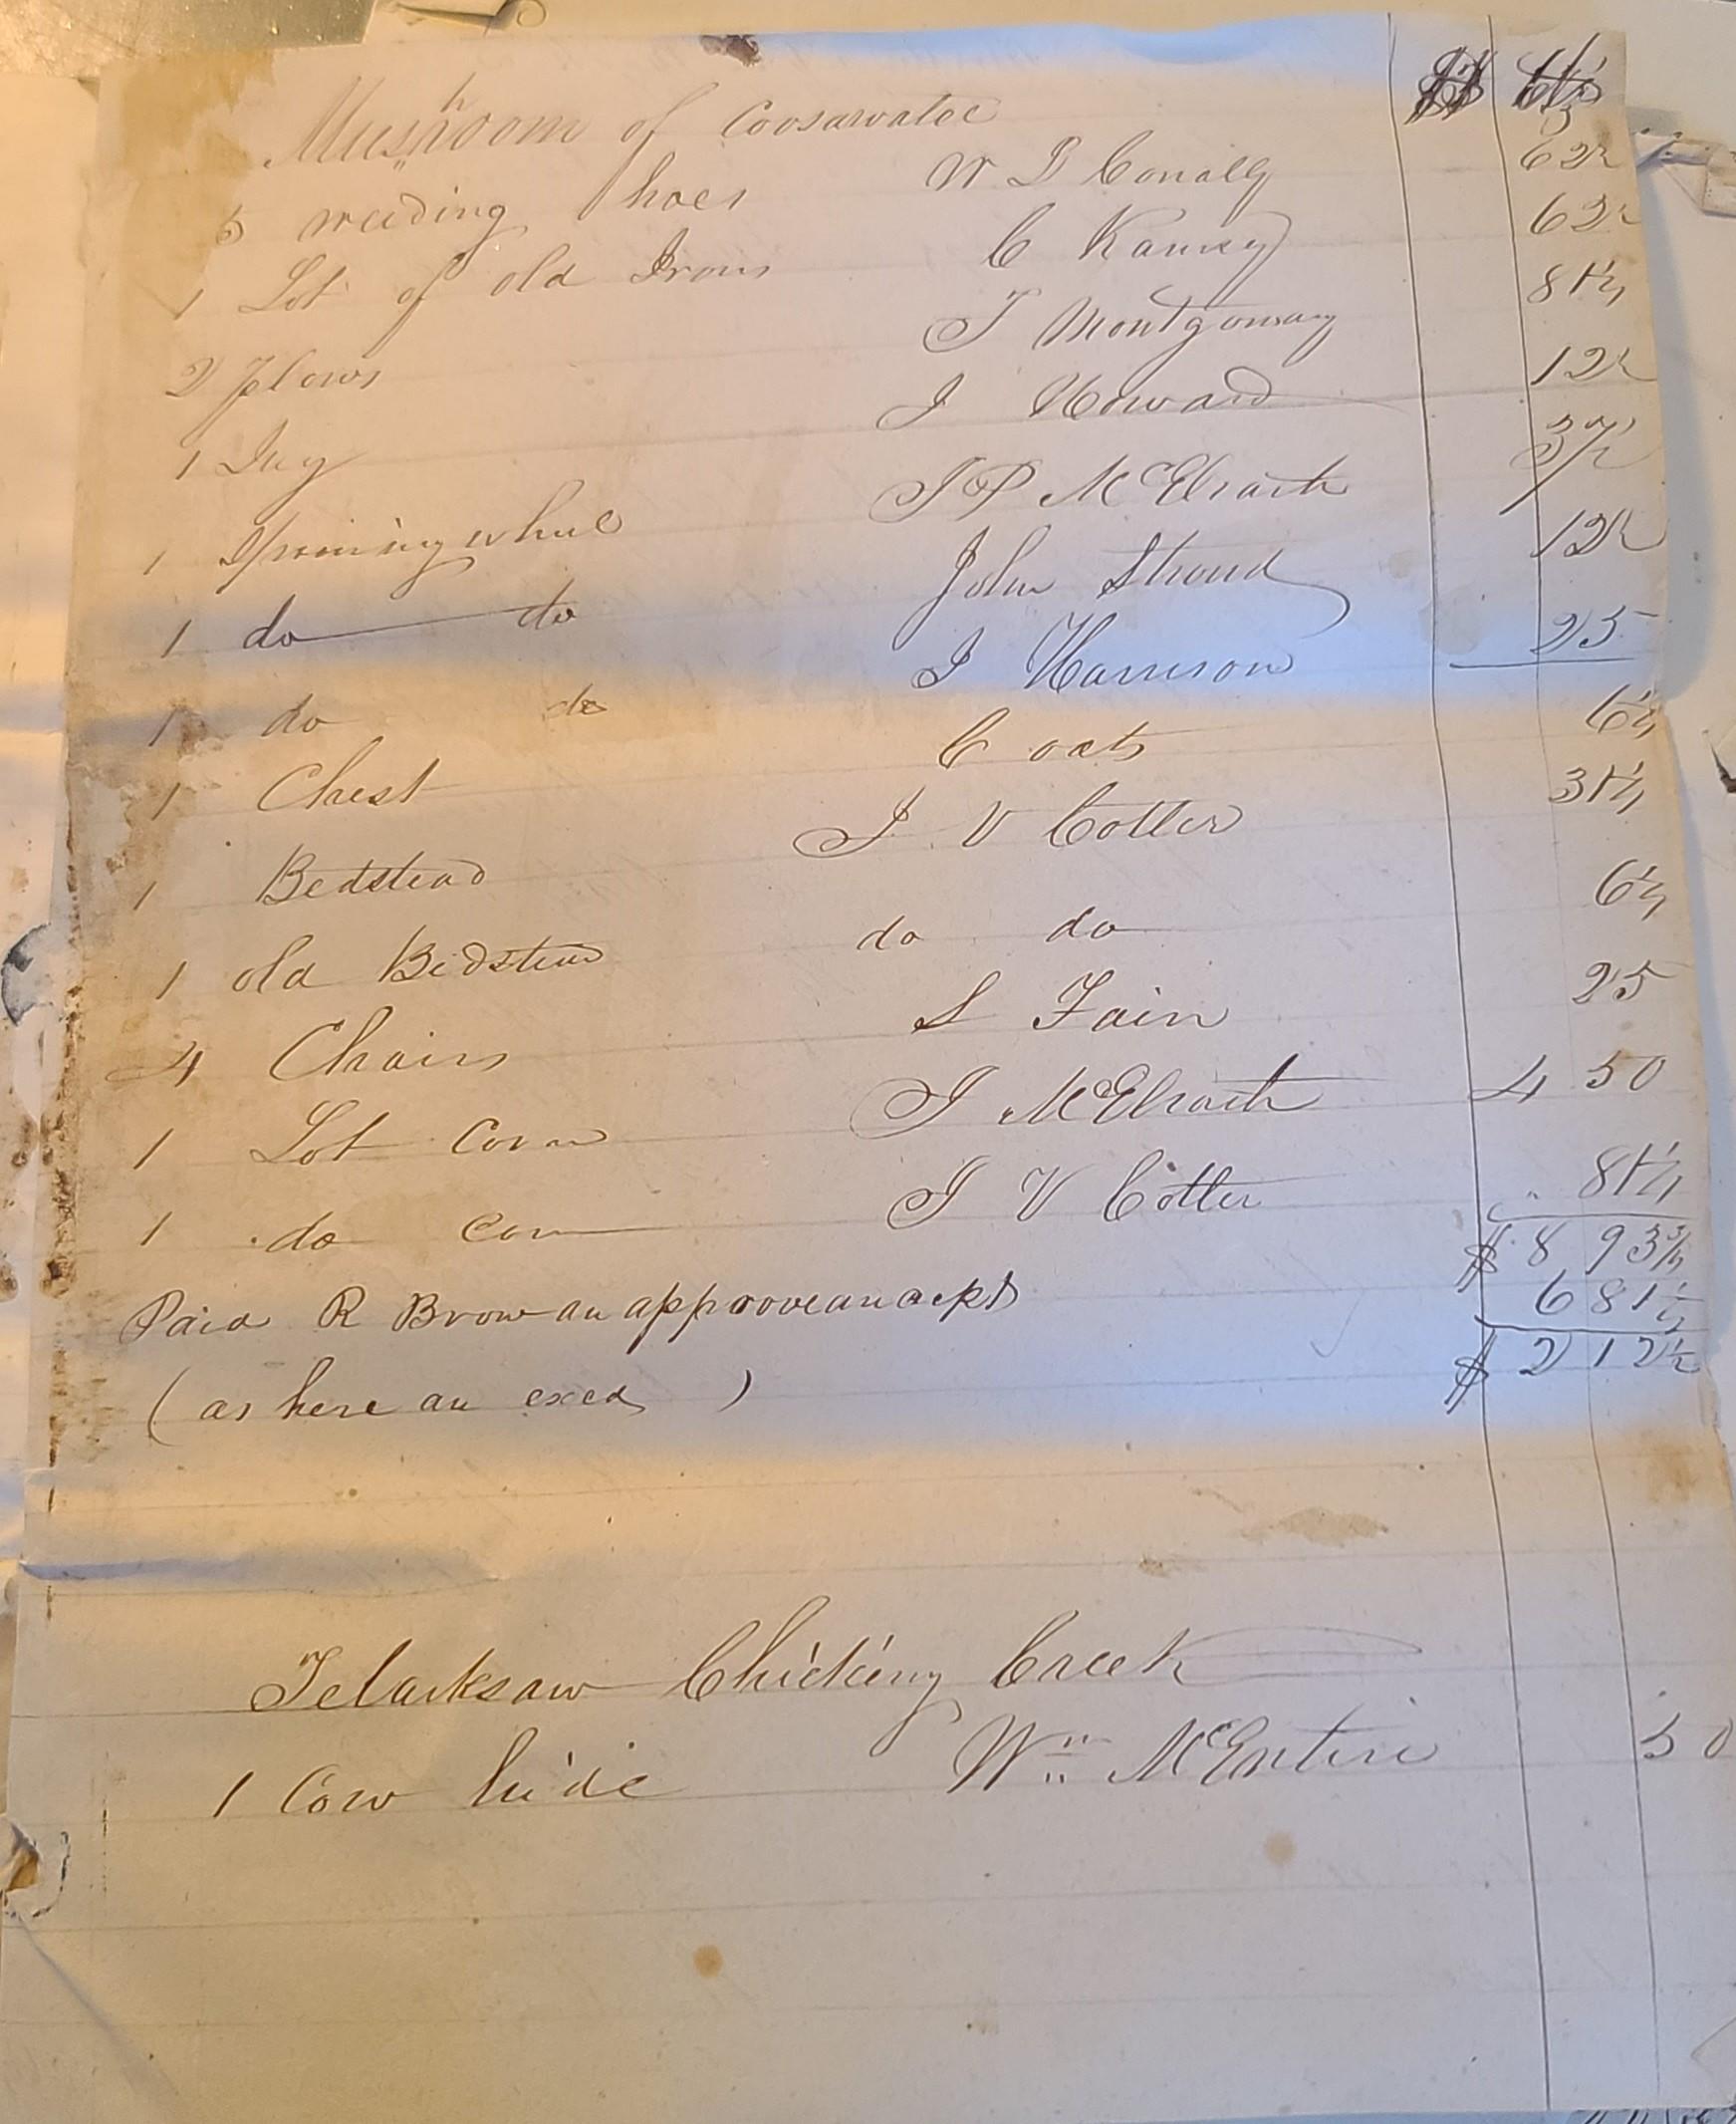 Mushroom of Coosawatee $$ Cts
5 weeding hoes W D Conally 62½
1 Lot of old Irons C Ramsey 62½
2 Plows T Montgomery 81¼
1 Jug J Howard 12½
1 Spinning wheel J P McElrath 37½
1 do do John Stroud 12½
1 do do J Harrison 25
1 Chest C oats 6¼
1 Bedstead J V Cotter 31¼
1 old Bedstead do do 6¼
4 Chairs S Fain 25
1 Lot Corn J McElrath 4 50
1 do corn J V Cotter 81¼
$ 8 93¾
Paid R Brow an approve an acpt 6 81¼
(as here an exed) $ 2 12½
Telarksaw Chicking Creek
1 Cow hide Wm McEntire 50